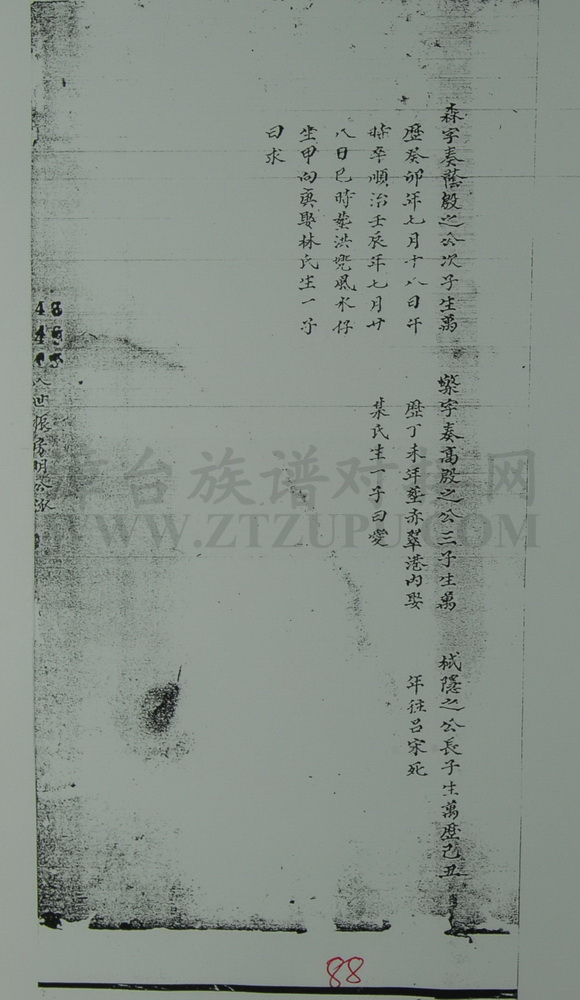 森字奏蔭殷之公次子生萬
歷癸卯年七月十八日午
時卒順治壬辰年七月廿
八日巳時葬洪嶝風水仔
坐甲向庚娶林氏生一子
曰求
縈字奏高殷之公三子生萬
歷丁未年塟赤翠港內娶
葉氏生一子曰愛
栻隱之公長子生萬歷己丑
年往呂宋死
世振房明
族谱对接网
WWW.ZTZUPU.COM
88